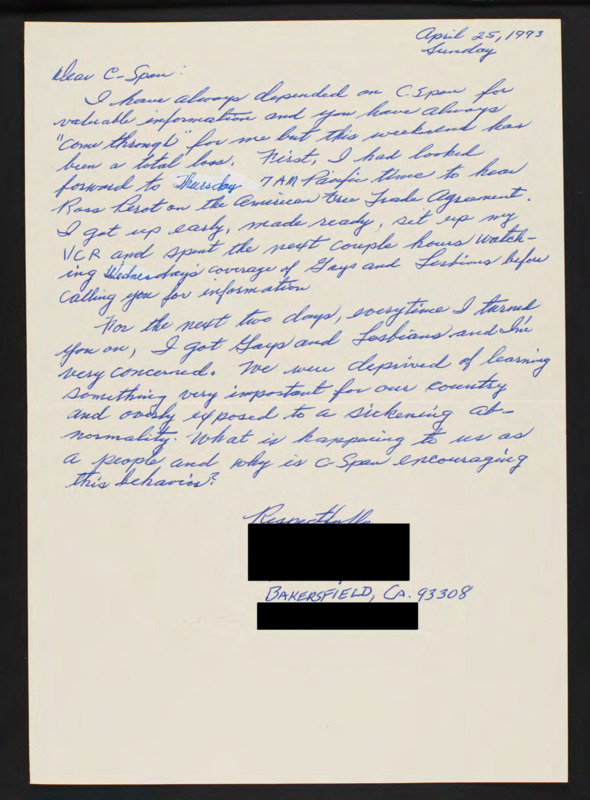 April 25, 1993
Sunday
Dear C-Span:
I have always depended on C-Span for
valuable information and you have always
"come through" for me but this weekend has
been a total loss. First, I had looked
forward to Thursday 7 AM Pacific time to hear
Ross Perot on the American Free Trade Agreement.
I got up early, made ready, set up my
VCR and spent the next couple hours watch-
ing Wednesdays coverage of Gays and Lesbians before
calling you for information
For the next two days, everytime I turned
you on, I got Gays and Lesbians and I'm
very concerned. We were deprived of learning
something very important for our country
and overly exposed to a sickening ab-
normality. What is happening to us as
a people and why is C-Span encouraging
this behavior?
Respectfully
BAKERSFIELD, CA. 93308